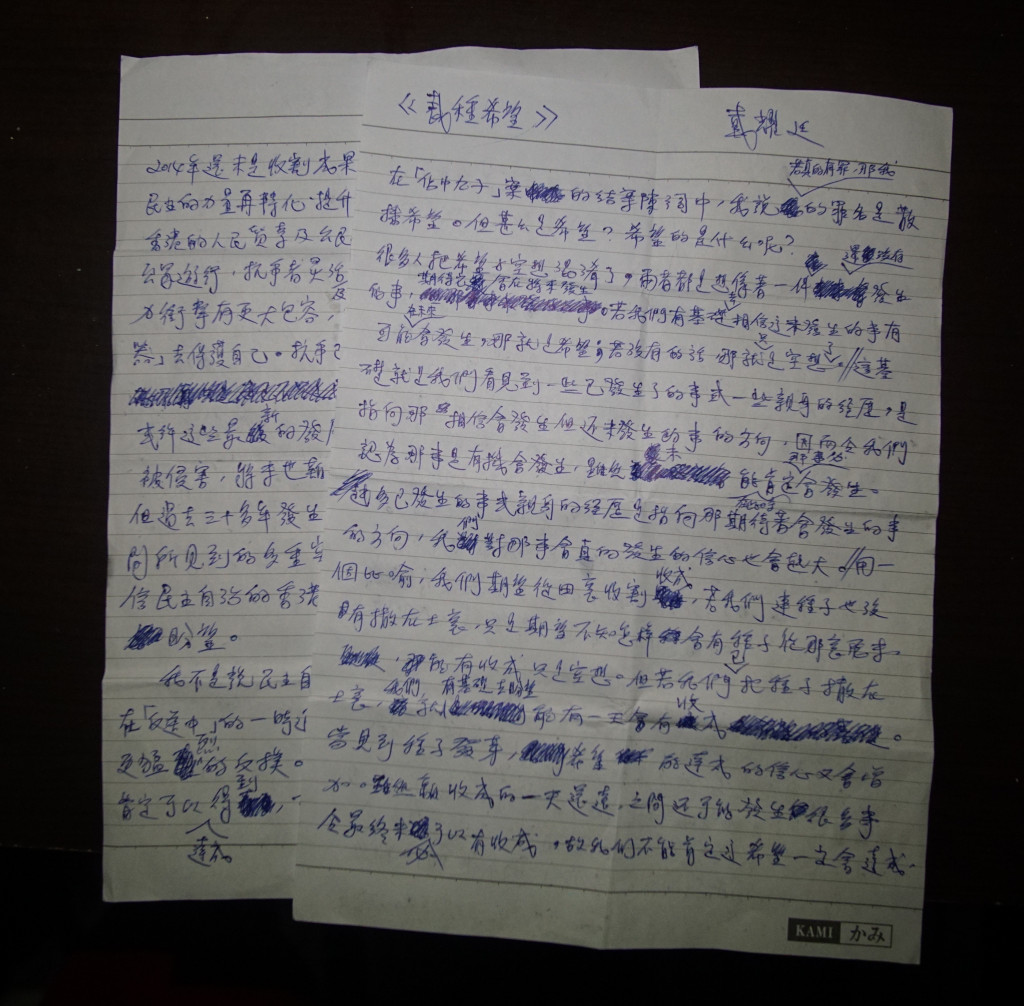 《栽種希望》
戴耀廷
若真的有罪,那我
在「佔中九子」案的結案陳詞中,我說的罪名是散
播希望。但甚么是希望?希望的是什么呢?
還沒有
很多人把希望與空想混淆了。兩者都是想像着一件發生
期待它會在將來發生
的事,若我們有基礎相信這未發生的事有
在未來
可能會發生,那就是希望;若沒有的話,那就只是空想了。//這基
礎就是我們看見到一些已發生了的事或一些親身的經歷,是
指向那相信會發生但還未發生的事的方向,因而令我們
認為那事是有機會發生,雖然未能肯定那事必會發生。
越多已發生的事或親身的經歷是指向那期待着會發生的事
的方向,我們對那事會真的發生的信心也會越大。//用一
個比喻,我們期望從田裏收割收成,若我們連種子也沒
有撒在土裏,只是期望不知怎樣會有種子從那裏而來,
能有收成只是空想。但若我們已把種子撒在
土裏,我們就有基礎去盼望能有一天會有收成。
當見到種子發芽,希望能達成的信心又會增
加。雖然離收成的一天還遠,之間還可能發生很多事
令最終未必可以有收成,故我們不能肯定這希望一定會達成。
KAMI かみ
2014年還未是收割成果
民主的力量再轉化、提升
香港的人民質素及公民
公眾遊行,抗爭者靈活
力衝擊有更大包容,及
然」去保護自己。抗爭已
或許這些最新的發
被侵害,將來也難
但過去三十多年發生
間所見到的多重
信民主自治的香港
盼望。
我不是說民主自
在「反送中」的一時
更猛烈的反撲。
肯定可以得到,
達成